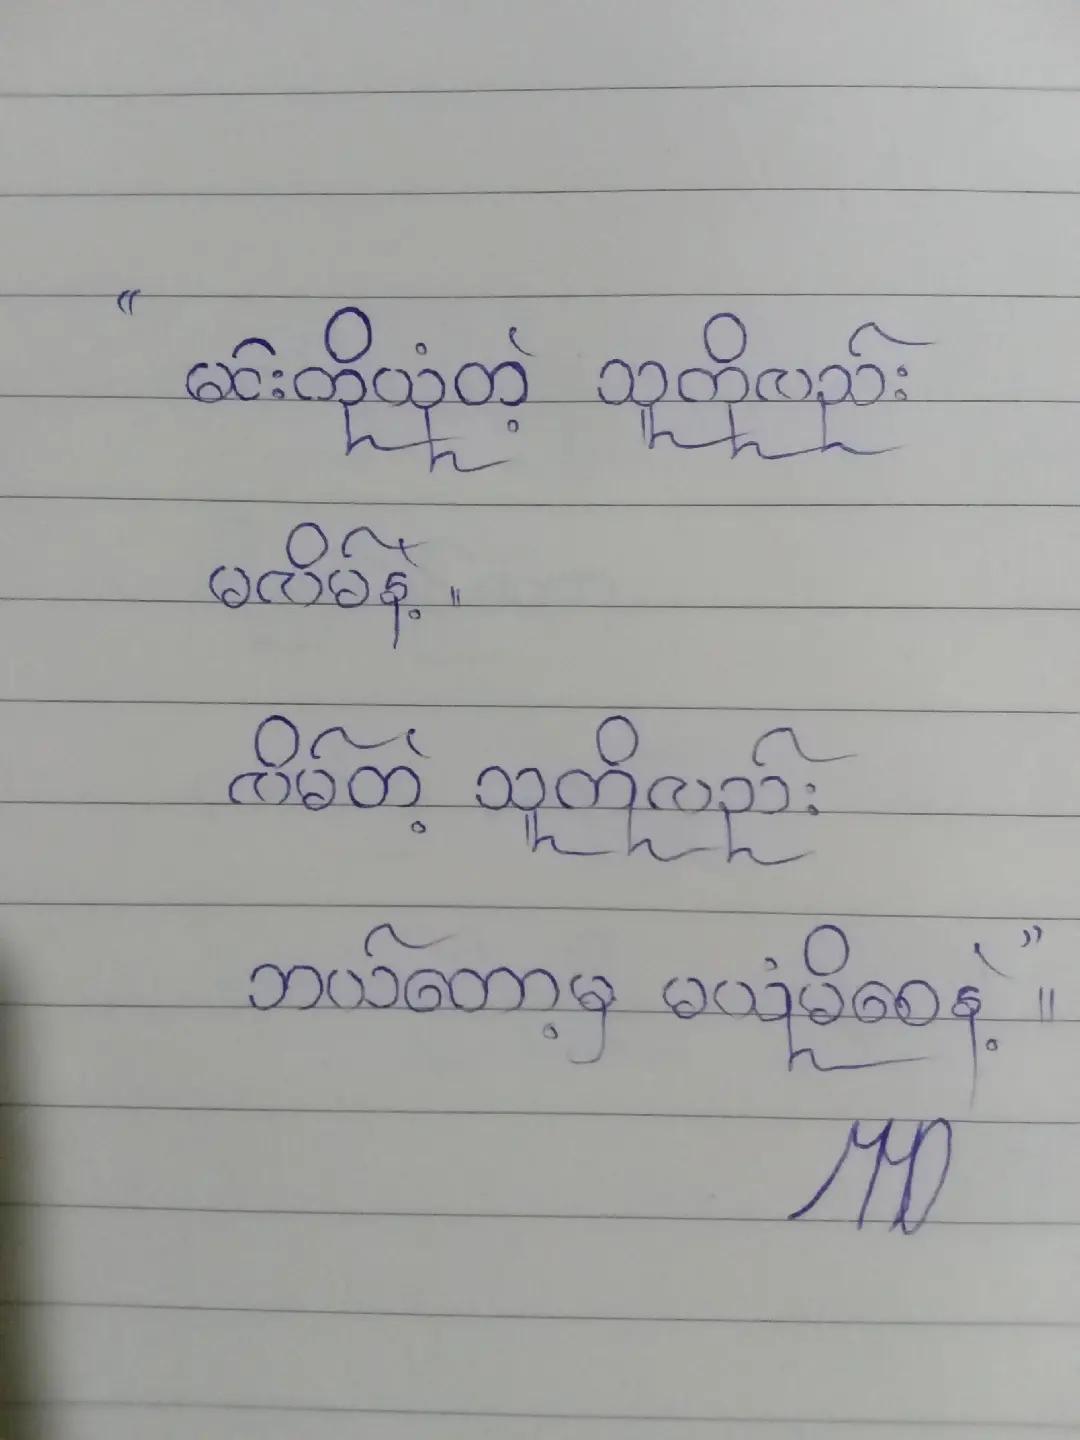 “
မင်းကိုယုံတဲ့ သူကိုလည်း
မလိမ်နဲ့။
လိမ်တဲ့ သူကိုလည်း
ဘယ်တော့မှ မယုံမိစေနဲ့” ။